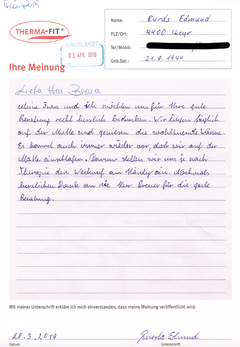 THERMA-FIT®
EINGELANGT
03. APR. 2019
Name: Runds Edmund
PLZ/Ort: 4400 Steyr
Tel/Mobil:
Geb.Dat.: 21.8.1940
Ihre Meinung
Liebe Herr Breuer
Meine Frau und ich möchten uns für Ihre gute
Beratung recht herzlich bedanken. Wir liegen täglich
auf der Matte und genießen die wohltuende Wärme.
Es kommt auch immer wieder vor, daß wir auf der
Matte einschlafen. Darum stellen wir uns je nach
Therapie den Weckruf am Handy ein. Nochmals
herzlichen Dank an sie Herr Breuer für die gute
Beratung.
Mit meiner Unterschrift erkläre ich mich einverstanden, dass meine Meinung veröffentlicht wird.
28.3.2019
Datum
Unterschrift